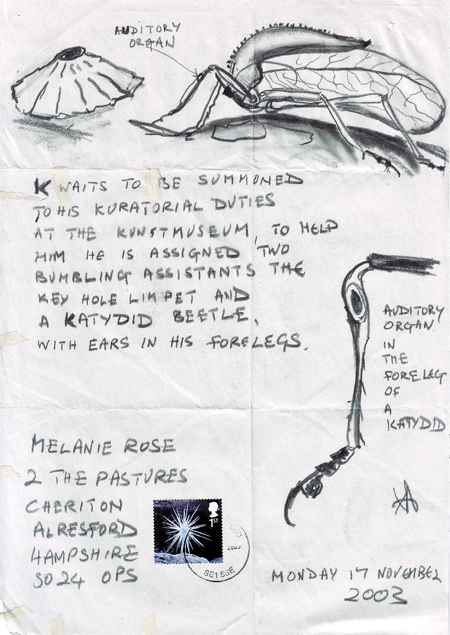 AUDITORY
ORGAN
K WAITS TO BE SUMMONED
TO HIS KURATORIAL DUTIES
AT THE KUNSTMUSEUM, TO HELP
HIM HE IS ASSIGNED TWO
BUMBLING ASSISTANTS THE
KEY HOLE LIMPET AND
A KATYDID BEETLE,
WITH EARS IN HIS FORELEGS.
AUDITORY
ORGAN
IN
THE
FORELEG
OF
A
KATYDID
MELANIE ROSE
2 THE PASTURES
CHERITON
ALRESFORD
HAMPSHIRE
SO24 OPS
1st
2003
MONDAY 17 NOVEMBER
2003